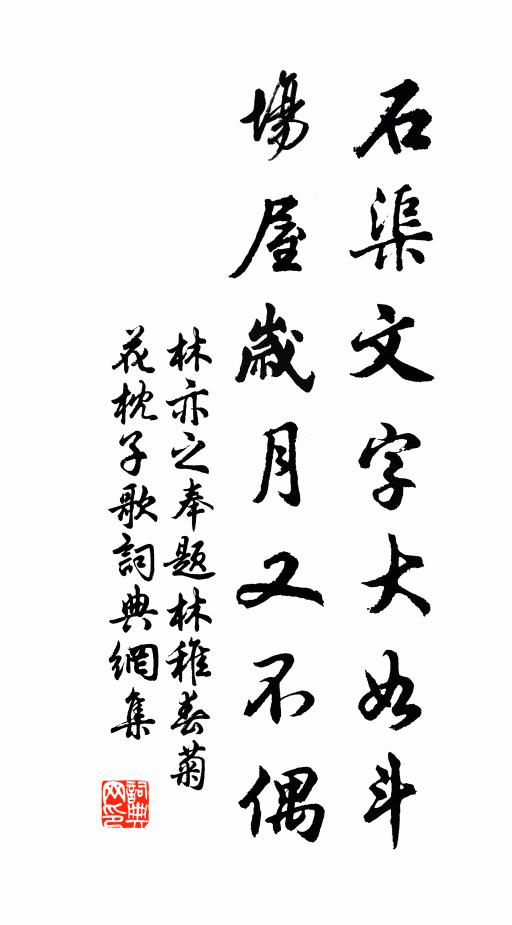 石渠文字大如斗
場屋歲月又不偶
林亦之奉題林稚春菊
花枕子歌詞典網集
詞典网印